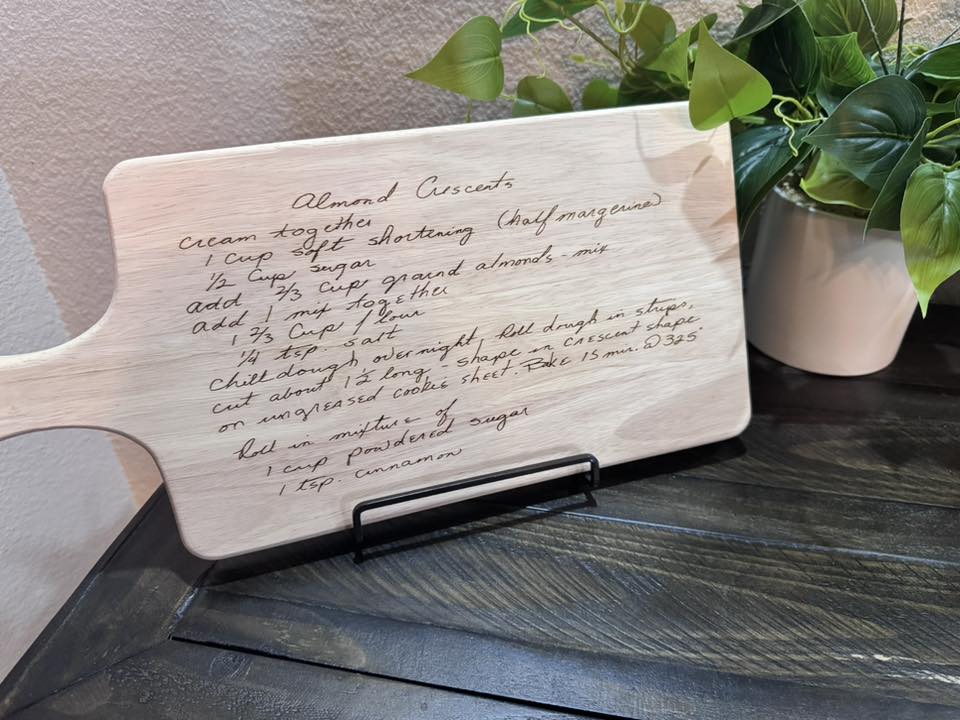 Almond Crescents
cream together
1 Cup soft shortening (half margerine)
1/2 Cup sugar
add 2/3 cup graind almonds - mix
add 1 mix together
1 2/3 Cup flour
1/4 tsp. salt
Chill dough overnight, Roll dough in strips,
cut about 1 1/2 long - shape in crescent shape
on ungreased cookie sheet. Bake 15 min. @ 325°
Roll in mixture of
1 cup powdered sugar
1 tsp. cinnamon